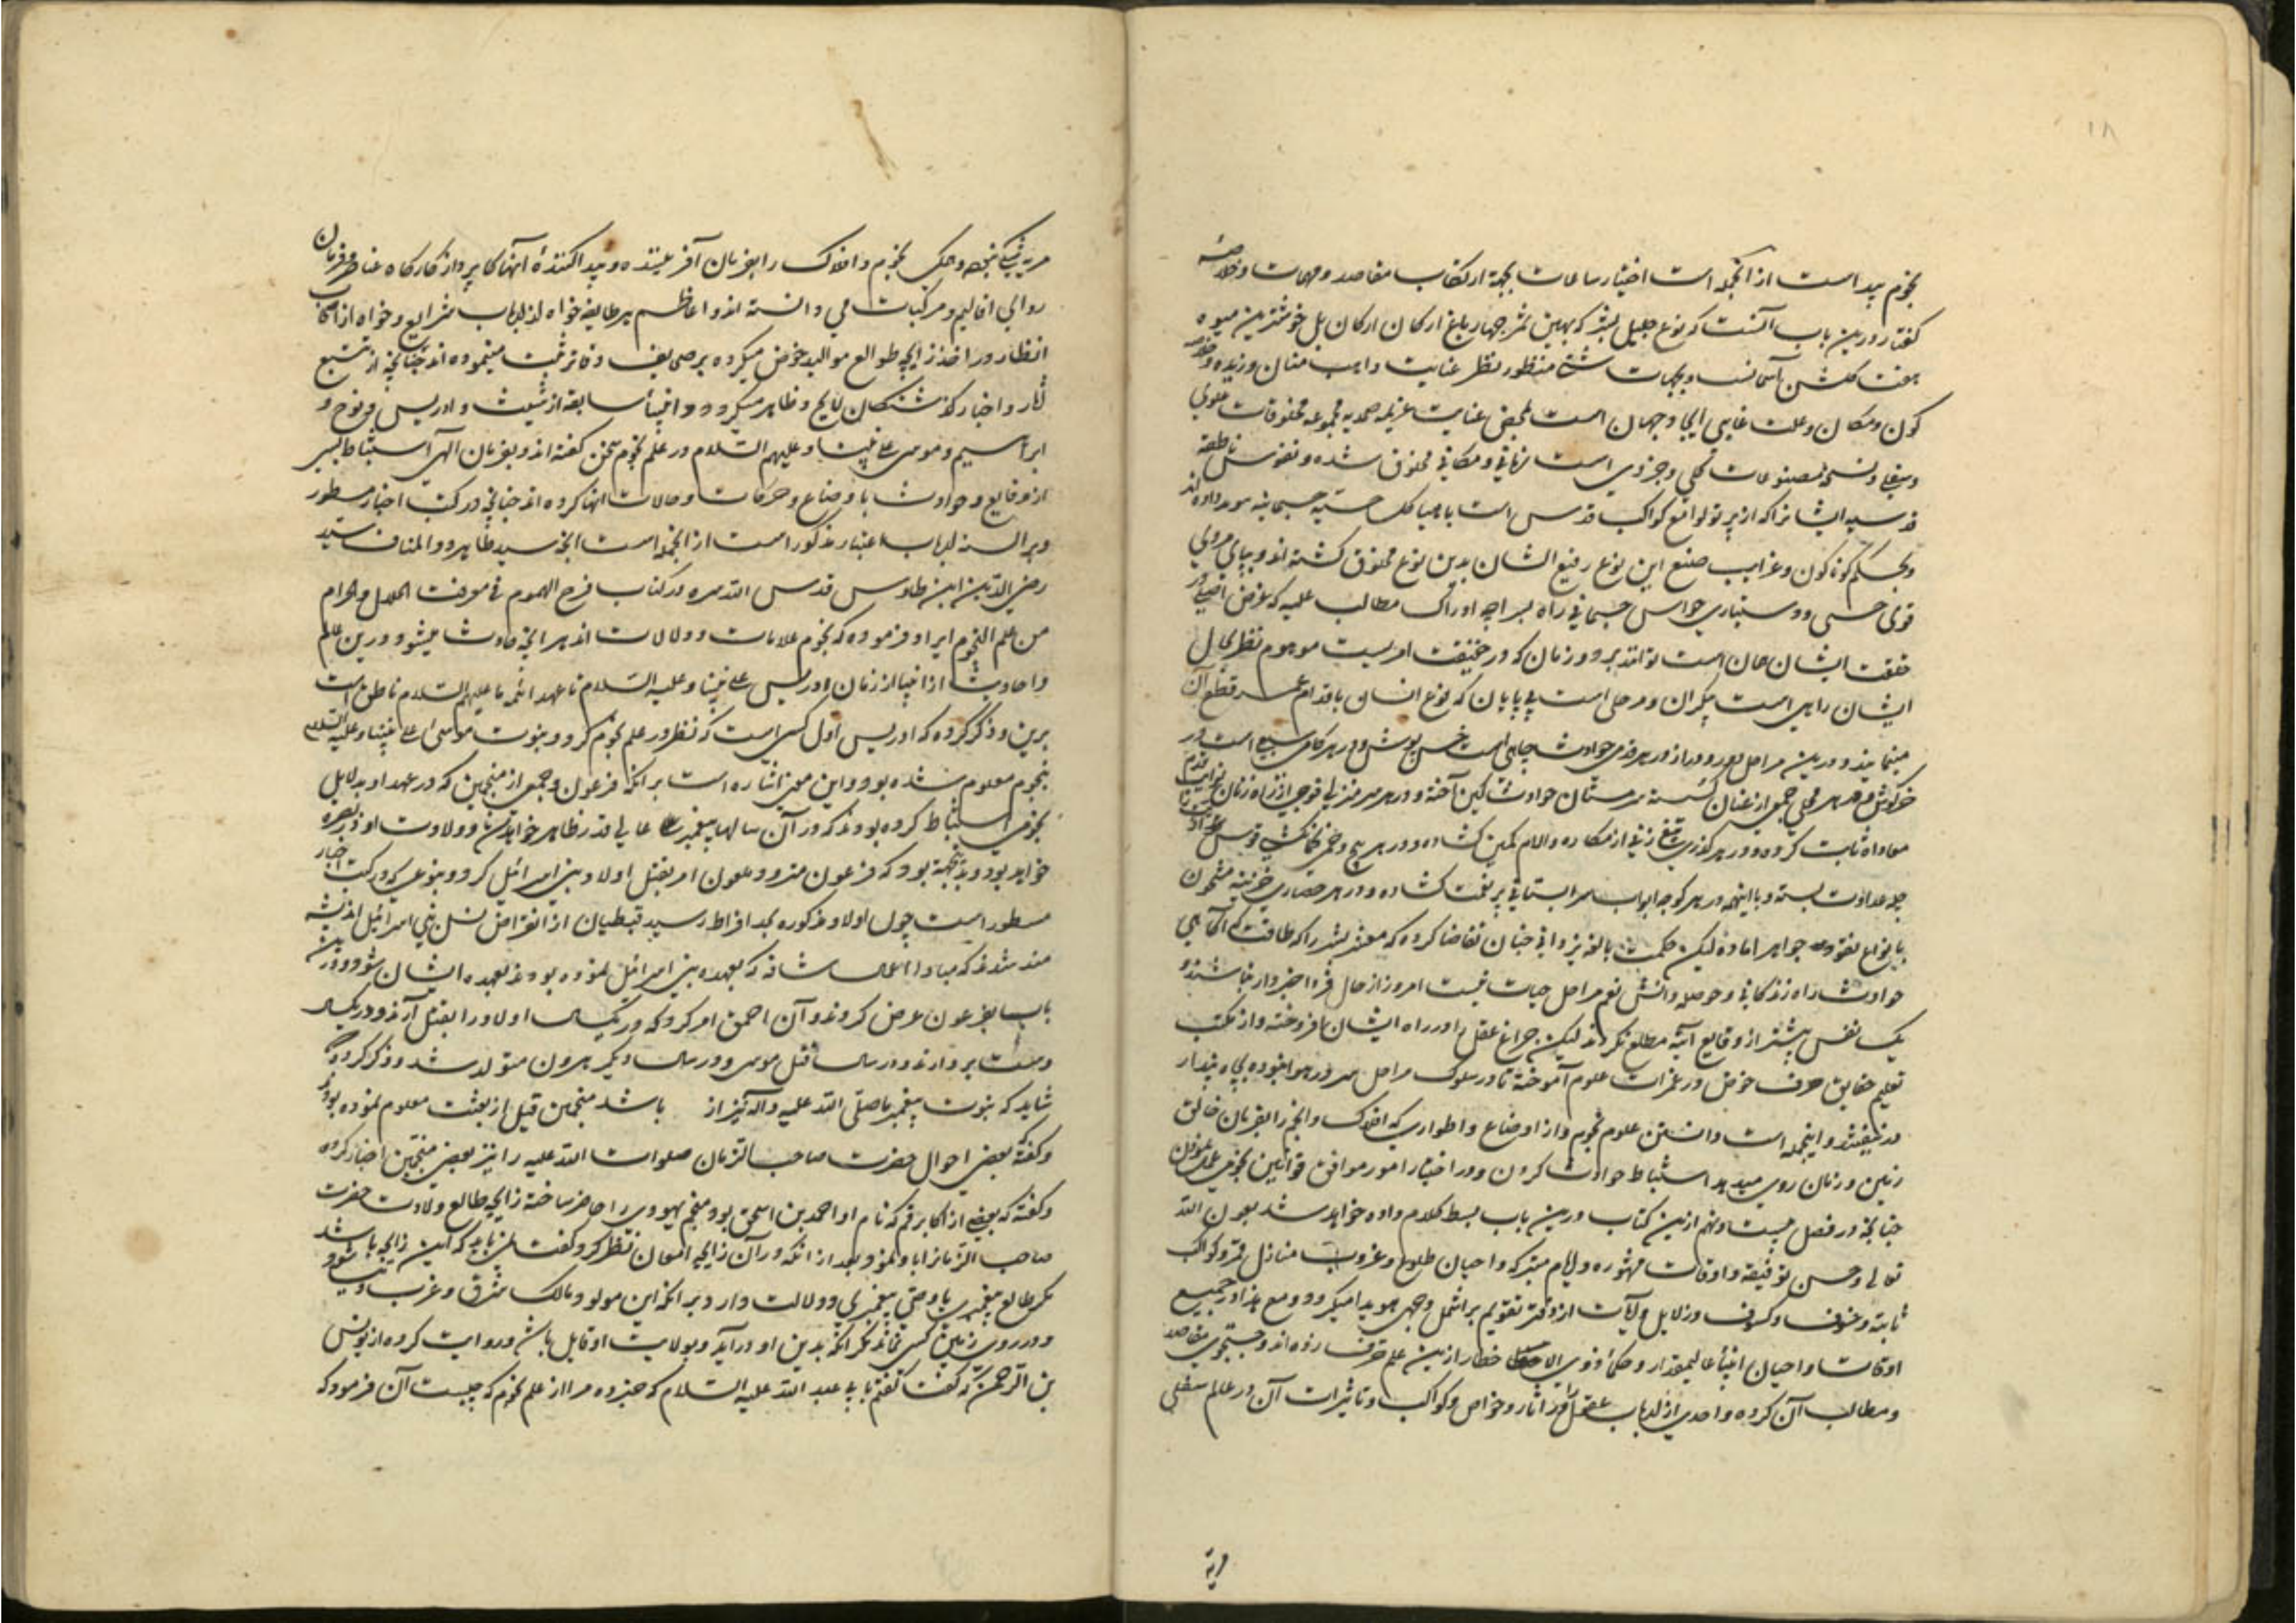 ۱۸
نجوم پیداست از آنجمله است اختیار ساعات بجهة ارتکاب مقاصد و مهمات و خلاصهٔ
گفتار درین باب آنست که نوع جلیل بشر که بهین ثمر چهار باغ ارکان بل خوشترین میوه
هفت گلشن آسمانست و بجهات منظور نظر عنایت واهب منان و زبده و
کون و مکان و علت غایی ایجاد جهان است بمحض عنایت صمدیه مجموعه مخلوقات علوی
و سفلی و نسخه مصنوعات کلی و جزوی است زمانی و مکانی مخلوق شده و نفوس ناطقه
قدسیه ایشانرا که از پرتو لوامع کواکب قدس است با هیاکل حسیه جسمانیه داده‌اند
و بحکم گوناگون و غرایب صنع این نوع رفیع الشان بدین نوع مخلوق گشته‌اند و بپای مردی
قوای حسی و دستیاری حواس جسمانی راه بسراچه ادراک مطالب علمیه که غرض اقصی از
خلقت ایشان همان است توانند برد و زمان که در حقیقت امریست موهوم نظر بحال
ایشان راهی است بیکران و مرحله است بی پایان که نوع انسان باقدام عمر قطع آن
مینمایند و درین مراحل دور و دراز در هر قدمی حوادث چاهی است خس پوش و در هر کامی سبعی است در
خرگوش و در هر محلی جمعی از عنان گسسته سرمستان حوادث کمین آخته و در هر سر منزلی فوجی از راه زنان
معادات ثابت کرده و در هر گذری تیغ زنی از مکاره و الام کمین گشاده و در هر پیچ و خمی کمانکشی قوس
چله عداوت بسته و با اینهمه در هر کوچه ابواب سرابستانی پر نعمت گشاده و در هر حصاری خزینه مشحون
بانواع نقود و جواهر آماده لیکن حکمت بالغه یزدانی چنان تقاضا کرده که معشر بشر را که طاقت آگاهی
حوادث راه زندگانی و حوصله دانش نعم مراحل حیات نیست امروز از حال فردا خبردار نباشند و
یک نفس پیشتر از وقایع آتیه مطلع نگردند لیکن چراغ عقل را در راه ایشان افروخته و از مکتب
تعلیم حقایق حرف خوض در غمرات علوم آموخته تا در سلوک مراحل بچاه پندار
در نیفتند و اینجمله است دانستن علوم نجوم و از اوضاع و اطواری که افلاک و انجم را بفرمان خالق
زمین و زمان روی میدهد استنباط حوادث کردن و در اختیار امور موافق قوانین نجومی عمل نمودن
چنانچه در فصل بیست و نهم ازین کتاب درین باب بسط کلام داده خواهد شد بعون الله
تعالی و حسن توفیقه و اوقات مشهوره و ایام متبرکه و احیان طلوع و غروب منازل قمر و کواکب
ثابته و خسوف و کسوف و زلازل و آیات از دفتر تقویم بر اشمل وجهی هویدا میگردد و مع هذا در جمیع
اوقات و احیان انبیأ عالیمقدار و حکمأ ذوی الاخطار ازین علم حرف زده‌اند و جستجوی مقاصد
و مطالب آن کرده و احدی از ارباب عقول در آثار و خواص و کواکب و تاثیرات آن در عالم سفلی
مریه
مریه نیست بلکه وجمله نجوم و افلاک را بفرمان آفریننده و پیدا کنندهٔ آنها کارپرداز کارگاه عناصر و فرمان
روای اقالیم و مرکبات می دانسته‌اند و اعاظم هر طایفه خواه از ارباب شرایع و خواه از اصحاب
انظار در اخذ زایچه طوالع موالید خوض میکرده بر صحایف دفاتر ثبت مینموده‌اند چنانچه از تتبع
آثار و اخبار گذشتگان لایح و ظاهر میگردد و انبیأ سابقه از شیث و ادریس و نوح و
ابراهیم و موسی علی نبینا و علیهم السلام در علم نجوم سخن گفته‌اند و بفرمان الهی استنباط بسیر
از وقایع و حوادث با وضاع و حرکات و حالات انها کرده‌اند چنانچه در کتب اخبار مسطور
و بر السنه ارباب اعتبار مذکور است از آنجمله است آنچه سید طاهر ذو المناقب سید
رضی الدین ابن طاوس قدس الله سره در کتاب فرج الهموم فی معرفت الحلال و الحرام
من علم النجوم ایراد فرموده که نجوم علامات و دلالات اند بر آنچه حادث میشود درین عالم
و احادیث از انبیا از زمان ادریس علی نبینا و علیه السلام تا عهد ائمه ما علیهم السلام ناطق است
برین و ذکر کرده که ادریس اول کسی است که نظر در علم نجوم کرد و نبوت موسی علی نبینا و علیه السلام
بنجوم معلوم شده بود و این معنی اشاره است بر آنکه فرعون و جمعی از منجمین که در عهد او بدلایل
نجومی استنباط کرده بودند که در آن سالها پیغمبری عالی قدر ظاهر خواهد شد و ولادت او
خواهد بود و بدینجهة بود که فرعون مردود ملعون امر بقتل اولاد بنی اسرائیل کرد و بنوعی که در کتب اخبار
مسطور است چون اولاد مذکوره بحد افراط رسید قبطیان از انقراض نسل بنی اسرائیل اندیشه
مند شدند که مبادا اعمال شاقه که بعهده بنی اسرائیل نموده بودند بعهده ایشان شود و درین
باب بفرعون عرض کردند و آن احمق امر کرد که در یکسال اولاد را بقتل آرند و در یکسال
دست بردارند و در سال قتل موسی و در سال دیگر هرون متولد شد و ذکر کرده که
شاید که نبوت پیغمبر ما صلی الله علیه و آله نیز از باشد منجمین قبل از بعثت معلوم نموده بودند
و گفته بعضی احوال حضرت صاحب الزمان صلوات الله علیه را نیز بعضی منجمین اخبار کرده
و گفته که بعضی از اکابر قم که نام او احمد بن اسحق بود منجم یهودی را حاضر ساخته زایچه طالع ولادت حضرت
صاحب الزمانرا باو نمود بعد از آنکه در آن زایچه امعان نظر کرد و گفت نمی باید که این زایچه باشد
مگر طالع پیغمبری یا وصی پیغمبری و دلالت دارد بر آنکه این مولود مالک شرق و غرب دنیا شود
و در روی زمین کسی نماند مگر آنکه بدین او درآید و بولایت او قایل باشد و روایت کرده از یونس
بن الرحمن که گفت گفتم بابی عبد الله علیه السلام که خبر ده مرا از علم نجوم که چیست آن فرمود که